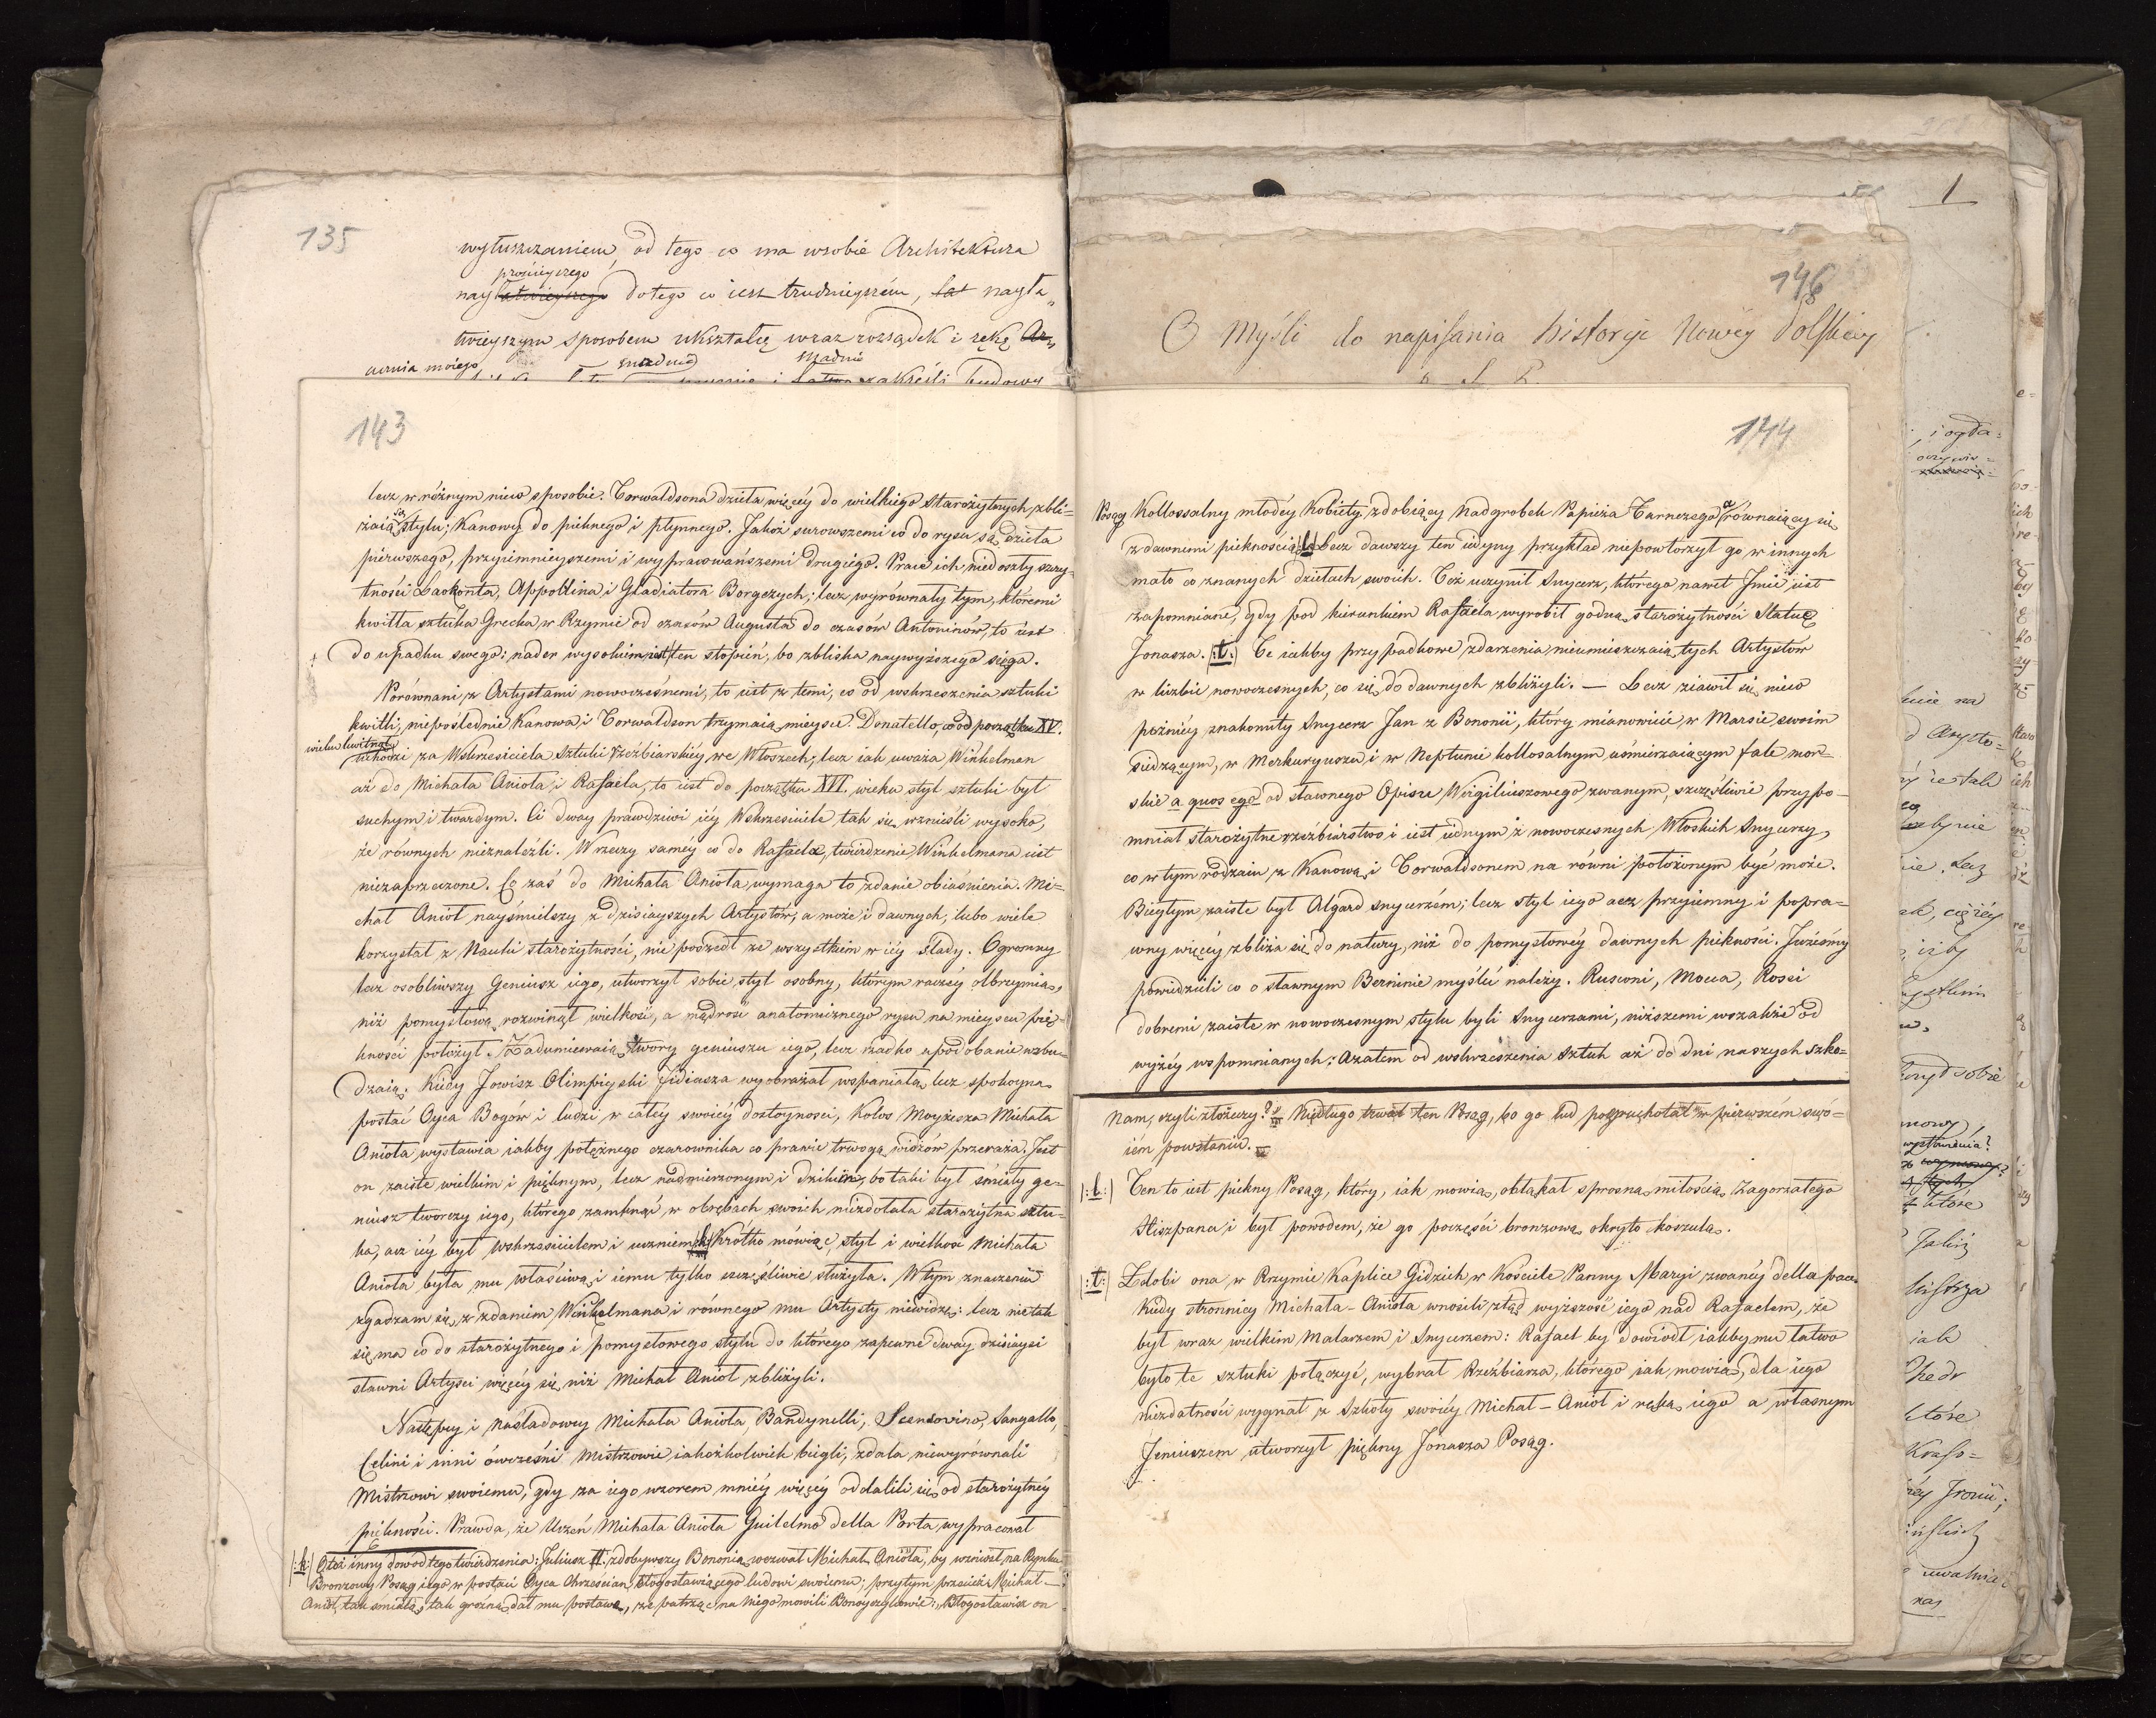 135
wyłuszczaniem, od tego co ma wsobie Architektura
prościeyszego
nay łatwieyszego do tego co iest trudnieyszém, łat nayła„
twieyszym sposobem ukształcę wraz rozsądek i rękę Az„
ucznia moiego
snadno
snadnie
zakreśli budowy
143
lecz w różnym nieco sposobie. Torwaldsona dzieła więcéy do wielkiego Starożytnych zbli=
żaią się stylu; Kanowy do pięknego i płynnego. Jakoż surowszemi co do rysu są dzieła
pierwszego, przyiemnieyszemi i wypracowańszemi drugiego. Prace ich niedoszły szczy=
tności Laokonta, Appollina i Gladiatora Borgezych; lecz wyrównały tym, któremi
kwitła sztuka Grecka w Rzymie od czasów Augusta do czasów Antoninów, to iest
do upadku swego: nader wysokim iest ten stopień, bo zbliska naywyższego sięga.
Porównani z Artystami nowoczesnemi, to iest z temi, co od wskrzeszenia sztuki
kwitli, niepoślednie Kanowa i Torwaldson trzymaią mieysce. Donatello, co od początku XV.
wieku kwitnął
uchodzi za Wskrzesiciela Sztuki rzeźbiarskiéy we Włoszech; lecz iak uważa Winkelman
aż do Michała Anioła i Rafaela, to iest do początku XVI. wieku styl sztuki był
suchym i twardym. Ci dway prawdziwi iéy Wskrzesiciele tak się wznieśli wysoko,
że równych nieznaleźli. W rzeczy saméy co do Rafaela, twierdzenie Winkelmana iest
niezaprzeczone. Co zaś do Michała Anioła, wymaga to zdanie obiaśnienia. Mi=
chał Anioł nayśmielszy z dzisiayszych Artystów, a może i dawnych, lubo wiele
korzystał z Nauki starożytności, nie poszedł ze wszystkim w iéy ślady. Ogromny
lecz osobliwszy Geniusz iego, utworzył sobie styl osobny, którym raczéy olbrzymią,
niż pomysłową rozwinął wielkość, a mądrość anatomicznego rysu na mieyscu pię=
kności położył. Zadumiewaią twory geniuszu iego, lecz rzadko upodobanie wzbu=
dzaią. Kiedy Jowisz Olimpiyski Fidiasza wyobrażał wspaniałą lecz spokoyną
postać Oyca Bogów i ludzi w całéy swoiéy dostoyności, Kolos Moyżesza Michała
Anioła wystawia iakby potężnego czarownika co prawie trwogą widzów przeraża. Jest
on zaiste wielkim i pięknym, lecz nadmierzonym i dzikim, bo taki był śmiały ge=
niusz tworczy iego, którego zamknąć w obrębach swoich niezdołała starożytna sztu=
ka, acz iéy był Wskrzesicielem i uczniem (:k:) Krótko mówiąc, styl i wielkość Michała
Anioła była mu właściwą i iemu tylko szczęśliwie służyła. W tym znaczeniu
zgadzam się z zdaniem Winkelmana i równego mu Artysty niewidzę: lecz nie tak
się ma co do starożytnego i pomysłowego stylu do którego zapewne dway dzisieysi
sławni Artyści więcéy się niż Michał Anioł zbliżyli.
Następcy i naśladowcy Michała Anioła, Bandynelli, Sansovino, Sangallo,
Celini i inni ówcześni Mistrzowie iakożkolwiek biegli, zdala niewyrównali
Mistrzowi swoiemu, gdy za iego wzorem mniéy więcéy oddalili się od starożytnéy
piękności. Prawda, że Uczeń Michała Anioła Guilelmo della Porta, wypracował
(:k:) Otoż inny dowód tego twierdzenia: Juliusz II. zdobywszy Bononią wezwał Michał Anioła, by wzniósł na Rynku
Bronzowy Posąg iego w postaci Oyca Chrześcian błogosławiącego ludowi swoiemu; przytym przecież Michał=
Anioł, tak śmiałą, tak groźną dał mu postawę, że patrząc na niego mówili Bonończykowie: „Błogosławisz on
1
146
O Myśli do napisania historyi Nowéy Polskiéy
144
Posąg Kollossalny młodéy Kobiety zdobiącéy Nadgrobek Papieża Farnezego a równaiącéy się
z dawnemi pięknością (:l:) Lecz dawszy ten iedyny przykład niepowtorzył go w innych
mało co znanych dziełach swoich. Toż uczynił Snycerz, którego nawet Jmie iest
zapomniane, gdy pod kierunkiem Rafaela wyrobił godną starożytności Statuę
Jonasza. (:ł:) Te iakby przypadkowe zdarzenia nieumieszczaią tych Artystów
w liczbie nowoczesnych, co się do dawnych zbliżyli. — Lecz ziawił się nieco
pożniéy znakomity Snycerz Jan z Bononii, który mianowicie w Marsie swoim
siedzącym, w Merkuryuszu i w Neptunie kollosalnym uśmierzaiącym fale mor=
skie a quos ego od sławnego Opisu Wirgiliuszowego zwanym, szczęśliwie przypo=
mniał starożytne rzeźbiarstwo i iest iednym z nowoczesnych Włoskich Snycerzy,
co w tym rodzaiu z Kanową i Torwaldsonem na równi położonym być może.
Biegłym zaiste był Algard Snycerzem; lecz styl iego acz przyiemny i popra=
wny więcéy zbliża się do natury, niż do pomysłowéy dawnych piękności. Jużeśmy
powiedzieli co o sławnym Berninie myśleć należy. Rusconi, Mocca, Rossi
dobremi zaiste w nowoczesnym stylu byli Snycerzami, niższemi wszakże od
wyżéy wspomnianych: A zatem od wskrzeszenia Sztuk aż do dni naszych szko=
Nam, czyli złożeczy? „ Niedługo trwał ten Posąg, bo go lud pogruchotał w pierwszém swo=
iém powstaniu.
(:l:) Ten to iest piękny Posąg, który, iak mowią, obłąkał sprosną miłością Zagorzałego
Hiszpana i był powodem, że go poczęści bronzową okryto koszulą.
(:ł:) Zdobi ona w Rzymie Kaplice Gidzich w Kościele Panny Maryi zwanéy della pace.
Kiedy stronnicy Michała-Anioła wnosili ztąd wyższość iego nad Rafaelem, że
był wraz wielkim Malarzem i Snycerzem: Rafael by dowiódł iakby mu łatwo
było te sztuki połączyć, wybrał Rzeźbiarza, którego iak mowią, dla iego
niezdatności wygnał z Szkoły swoiéy Michał-Anioł i ręką iego a własnym
Jeniuszem utworzył piękny Jonasza Posąg.